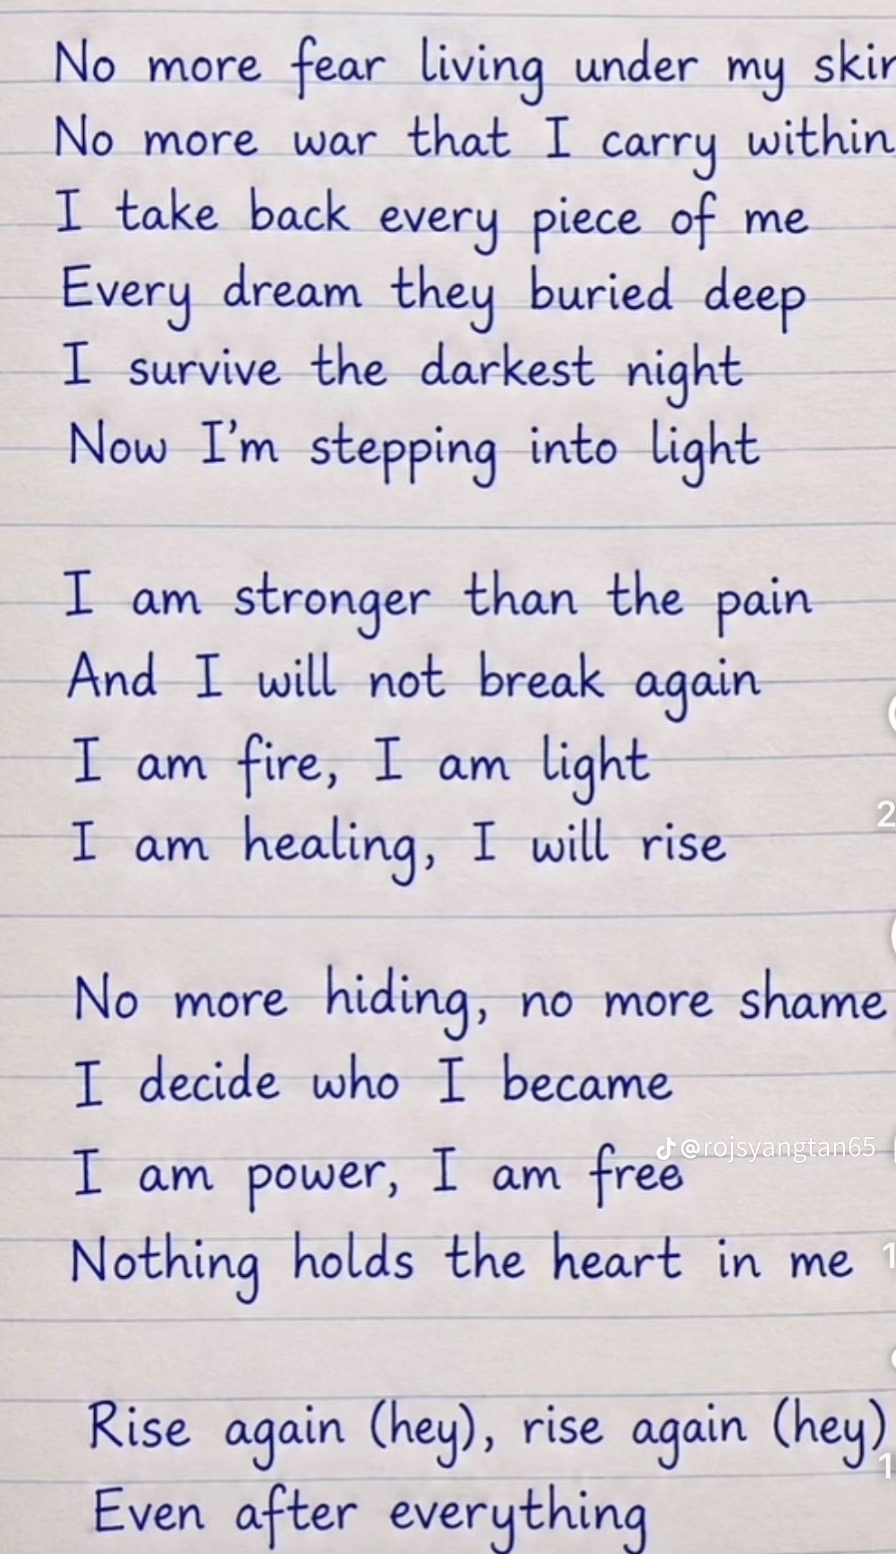 No more fear living under my skin
No more war that I carry within
I take back every piece of me
Every dream they buried deep
I survive the darkest night
Now I'm stepping into light
I am stronger than the pain
And I will not break again
I am fire, I am light
I am healing, I will rise
No more hiding, no more shame
I decide who I became
@rojsyangtan65
I am power, I am free
Nothing holds the heart in me
Rise again (hey), rise again (hey)
Even after everything